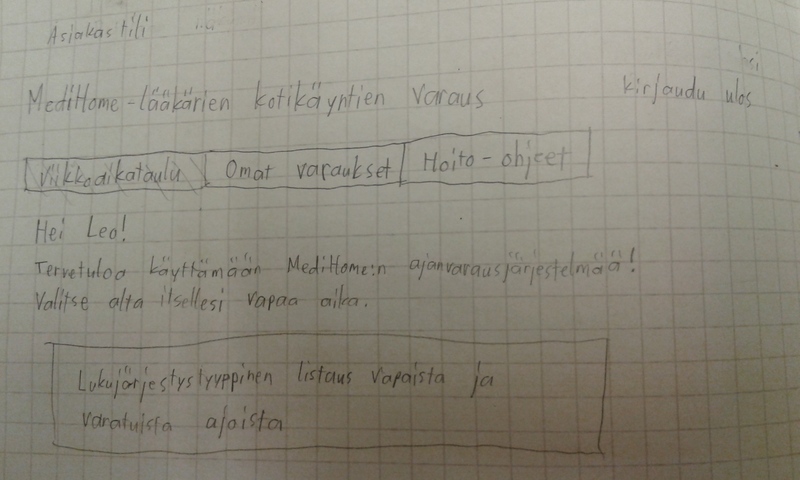 Asiakastili
MediHome-lääkärien kotikäyntien varaus
kirjaudu ulos
Viikkoaikataulu Omat varaukset Hoito-ohjeet
Hei Leo!
Tervetuloa käyttämään MediHome:n ajanvarausjärjestelmää!
Valitse alta itsellesi vapaa aika.
Lukujärjestystyyppinen listaus vapaista ja
varatuista ajoista